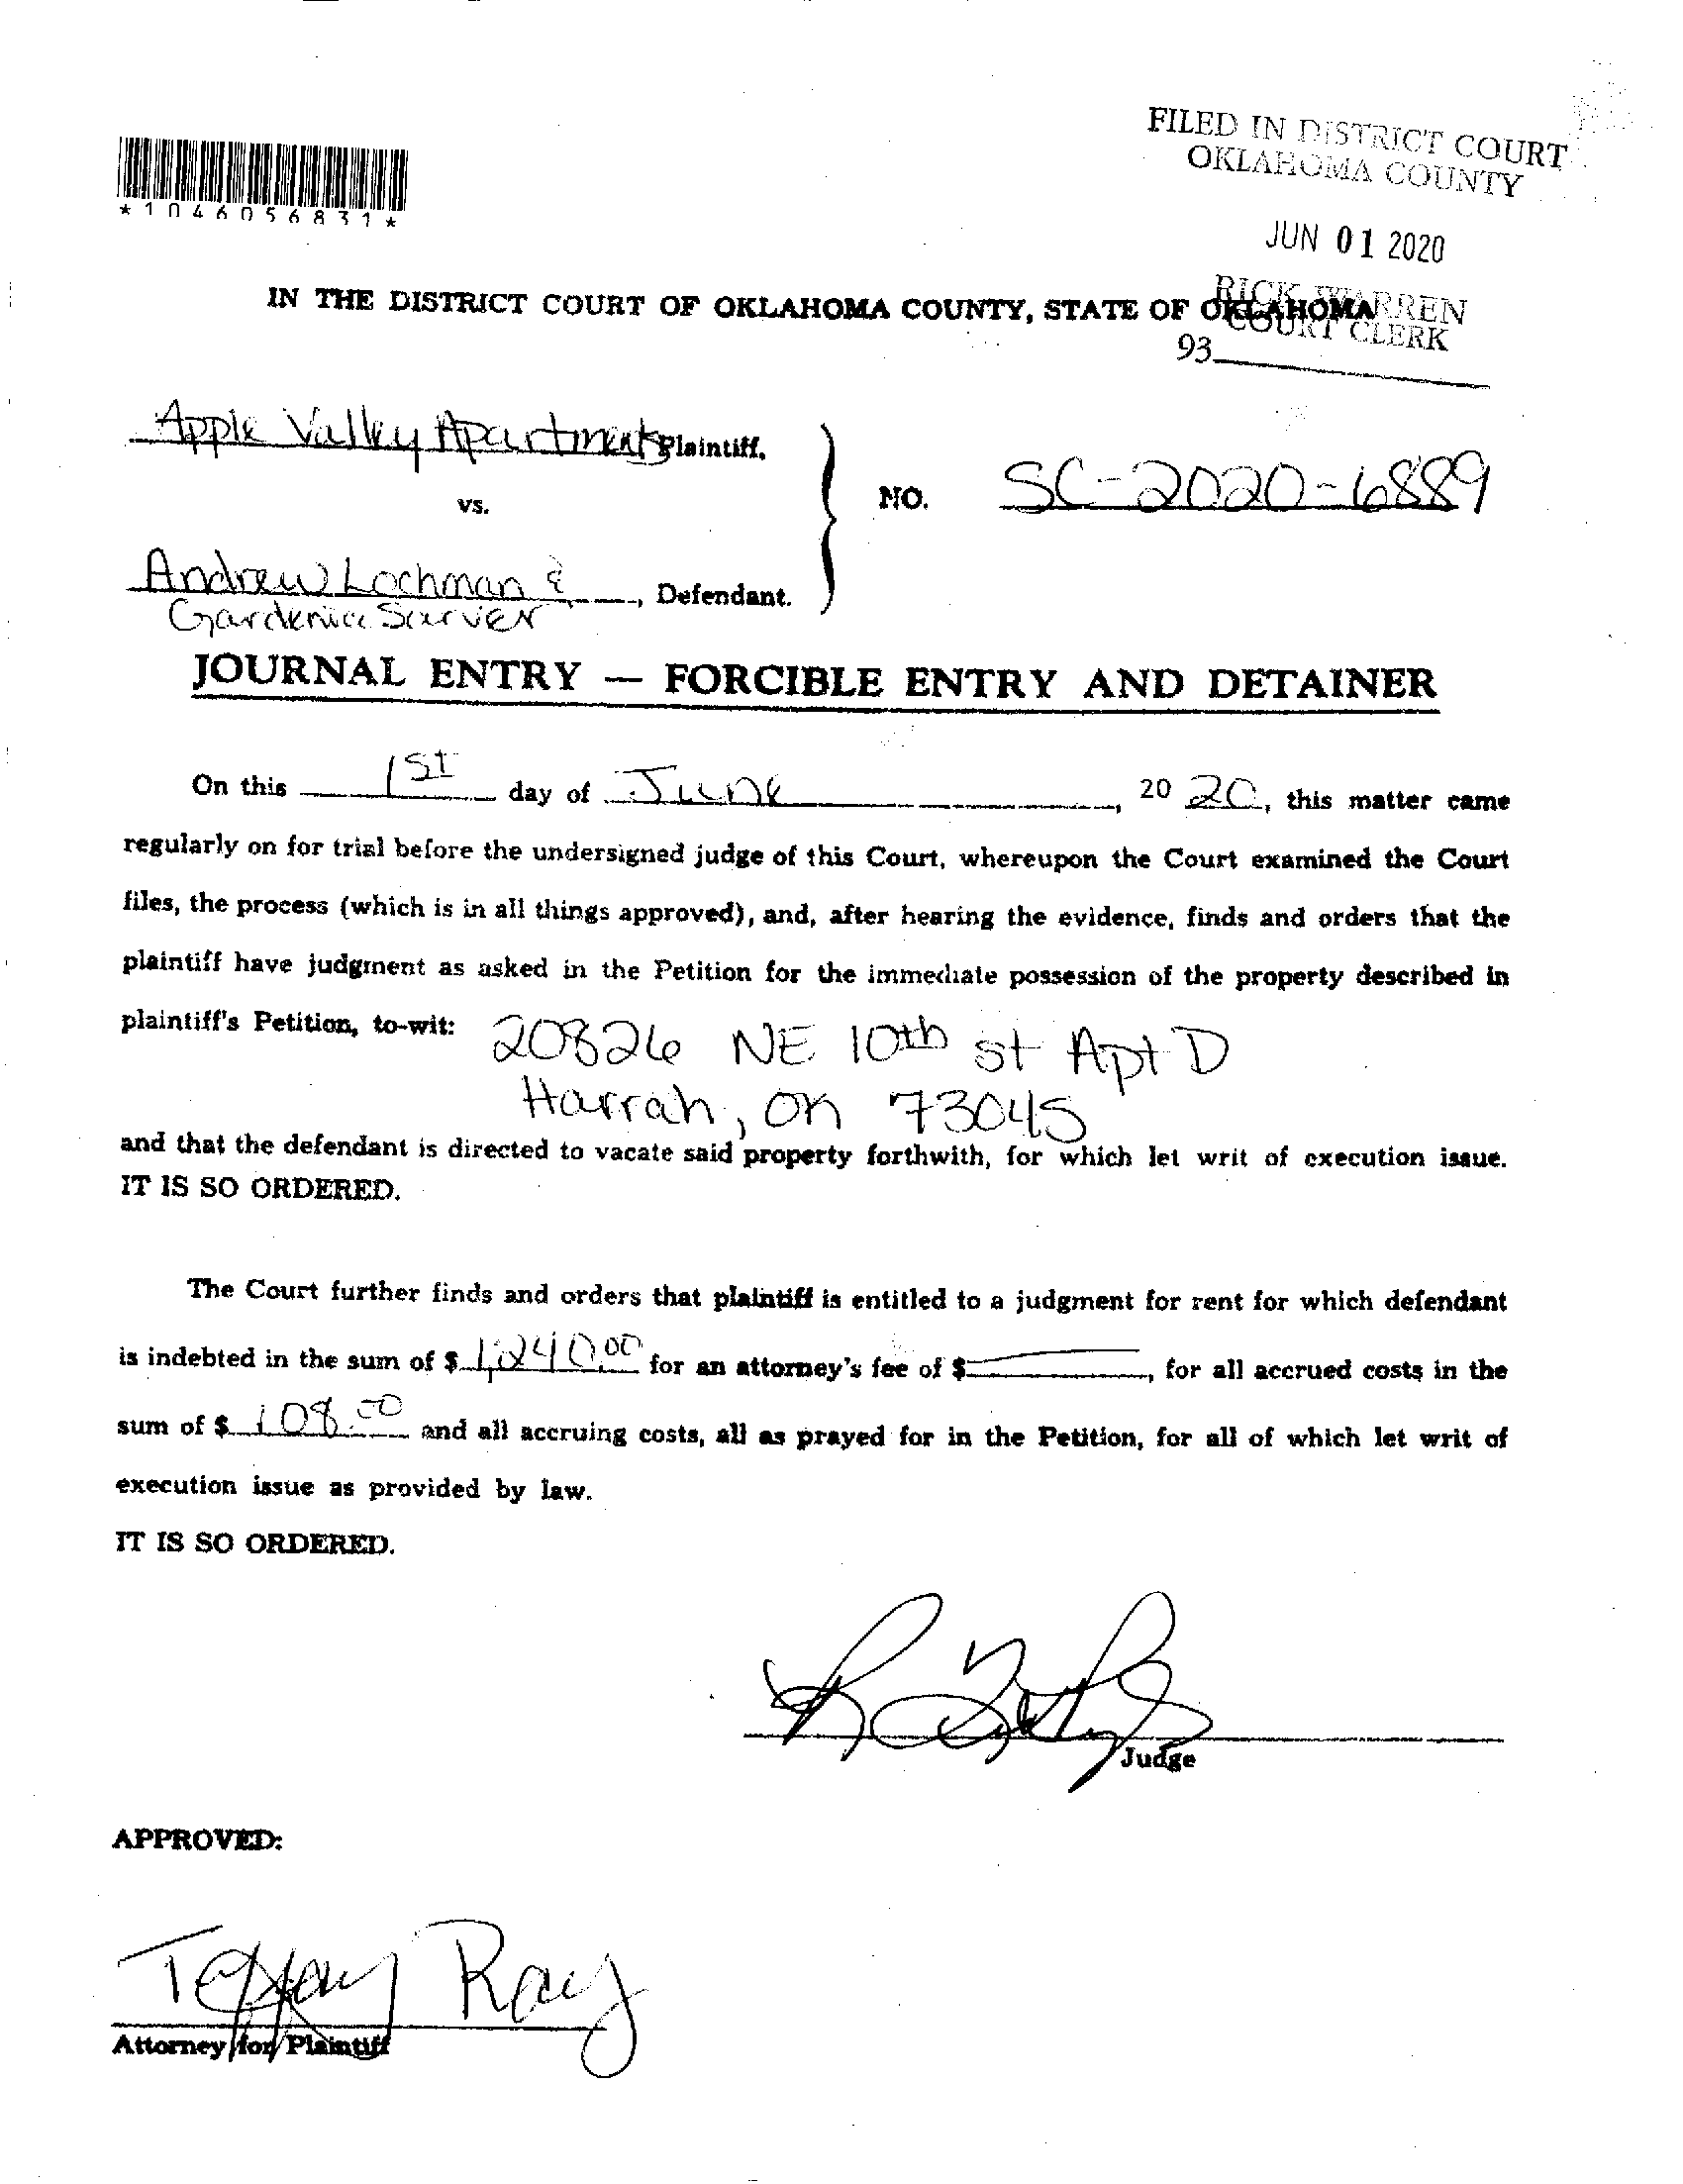 FILED IN DISTRICT COURT
OKLAHOMA COUNTY
*1046056831*
JUN 01 2020
RICK WARREN
COURT CLERK
IN THE DISTRICT COURT OF OKLAHOMA COUNTY, STATE OF OKLAHOMA
93
Apple Valley Apartments Plaintiff,
vs.
NO. SC-2020-6889
Andrew Lochman &
Gardenia Sarver, Defendant.
JOURNAL ENTRY — FORCIBLE ENTRY AND DETAINER
On this 1st day of June, 20 20, this matter came
regularly on for trial before the undersigned judge of this Court, whereupon the Court examined the Court
files, the process (which is in all things approved), and, after hearing the evidence, finds and orders that the
plaintiff have judgment as asked in the Petition for the immediate possession of the property described in
plaintiff's Petition, to-wit: 20826 NE 10th st Apt D
Harrah, OK 73045
and that the defendant is directed to vacate said property forthwith, for which let writ of execution issue.
IT IS SO ORDERED.
The Court further finds and orders that plaintiff is entitled to a judgment for rent for which defendant
is indebted in the sum of $ 1,240.00 for an attorney's fee of $ —, for all accrued costs in the
sum of $ 108.00 and all accruing costs, all as prayed for in the Petition, for all of which let writ of
execution issue as provided by law.
IT IS SO ORDERED.
Judge
APPROVED:
Ray
Attorney for Plaintiff